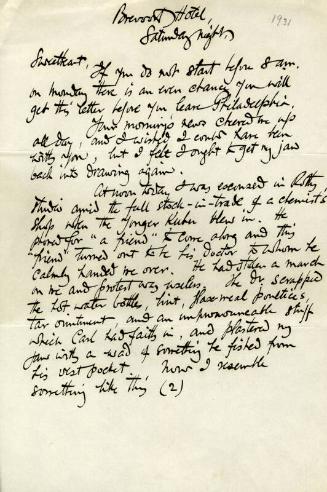 Brevoort Hotel,
1931
Saturday night
Sweetheart,
If you do not start before 8 a.m.
on Monday there is an even chance you will
get this letter before you leave Philadelphia.
Your morning's news cheered me up
all day, and I wished I could have been
with you, but I felt I ought to get my jaw
back into drawing again.
At noon today I was ensconced in
studio amid the full stock-in-trade of a chemist's
shop when the younger Kuhn blew in. He
phoned for "a friend" to come along and this
"friend" turned out to be his Doctor to whom he
calmly handed me over. He had stolen a march
on me and protest was useless. The dr. scrapped
the hot water bottle, lint, flaxmeal poultices,
tar ointment and an unpronounceable stuff
which Carl had faith in, and plastered my
jaw with a wad of something he fished from
his vest pocket. Now I resemble
something like this (2)